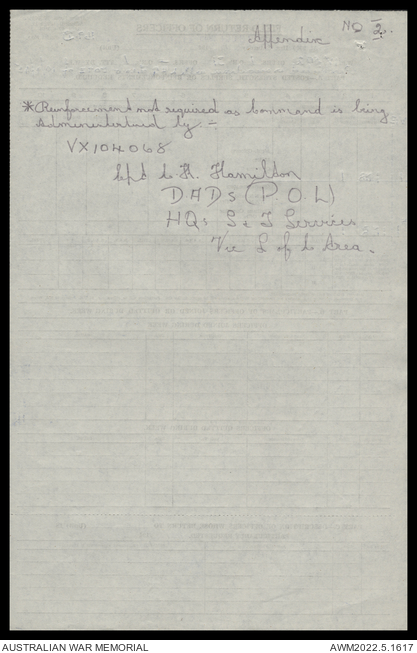 Appendix No 2.
*Reinforcement not required as Command is being
Administered by :-
VX104068
Capt L. H. Hamilton
DADS (P.O.L)
HQs S & T Services
Vic L of C Area.
AUSTRALIAN WAR MEMORIAL
AWM2022.5.1617